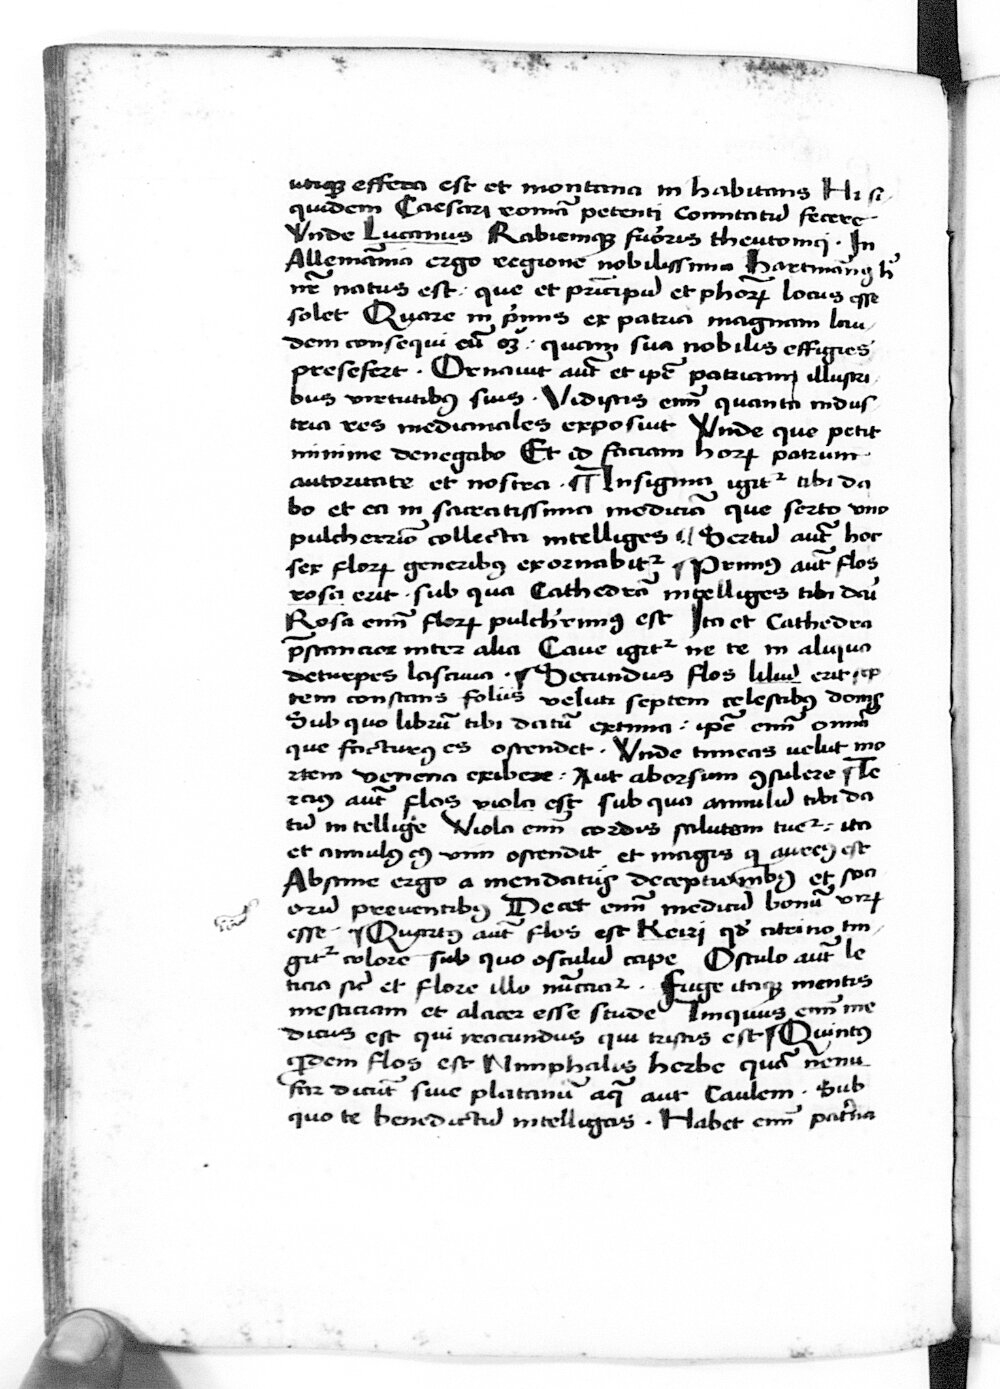 utiq̃ꝫ effera est et montana in habitans Hi si
quidem Caesari romã petenti comitatũ fecere
Vnde Lucanus Rabiemqꝫ furoris theutonici · In
Allemãnia ergo regione nobilissima hartmãnꝰ h̃
nr̃ natus est · que et prĩcipũ et phorꝝ locus esse
solet Quare in p̃mis ex patria magnam lau
dem consequi eũ oꝫ · quam sua nobilis effigies
presefert · Ornauit aut̃ et ipẽ patriam illustri
bus virtutibꝰ suis · Vidistis enĩ quanta indus
tria res medicinales exposuit Vnde que petit
minime denegabo Et id faciam horꝝ patrum
autoritate et nostra · ¶ Insignia igit᷑ tibi da
bo et ea in sacratissima medicĩa que serto vno
pulcherrĩo collecta intelliges ¶ Sertũ aut̃ hoc
sex florꝝ generibꝰ exornabit᷑ ¶ Primꝰ aut̃ flos
rosa erit · sub qua Cathedrã intelliges tibi dari
Rosa enĩ florꝝ pulch̃rimꝰ est Ita et Cathedra
p̃stancior inter alia Caue igit᷑ ne te in aliqua
deturpes lasciuia · ¶ Secundus flos liliũ erit sep
tem constans foliis veluti septem celestibꝰ donis
Sub quo librũ tibi datũ extima : ipẽ enĩ omnia
que facturꝰ es ostendet · Vnde timeas uelut mo
rtem venena exibere · Aut aborsum ꝯsulere ¶ Te
rciꝰ aut̃ flos viola est sub qua annulũ tibi da
tũ intellige Viola enĩ cordis salutem tuet᷑ : ita
et annulꝰ eꝰ vim ostendit et magis qꝫ aureꝰ est
Abstine ergo a mendatiis deceptionibꝰ et soci
orũ preuentibꝰ Decet enĩ medicũ bonũ virꝝ
esse · ¶ Quartꝰ aut̃ flos est Keiri qd̃ citrino tin
git᷑ colore sub quo osculũ cape Osculo aut̃ le
ticia sic̃ et flore illo nũciat᷑ · Fuge itaqꝫ mentis
mesticiam et alacer esse stude Iniquus enĩ me
dicus est qui iracundus qui tristis est ¶ Quintꝰ
q̃dem flos est Nimphalis herbe quã nẽnu
far dicũt siue platanũ aq̃ aut Caulem · Sub
quo te benedictũ intelligas · Habet enĩ patria